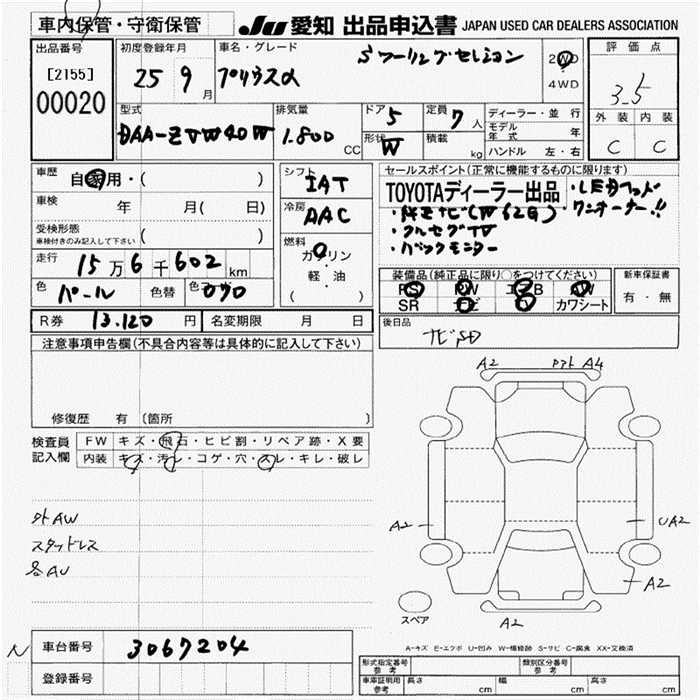 車内保管・守衛保管
JU 愛知 出品申込書 JAPAN USED CAR DEALERS ASSOCIATION
出品番号
[2155]
00020
初度登録年月
25 9 月
車名・グレード
プリウスα Sツーリングセレクション
2WD
4WD
評価点
3.5
外装 内装
C C
型式
DAA-ZVW40W
排気量
1.800 CC
ドア 5
形状 W
定員 7 人
積載 kg
ディーラー・並行
モデル年式 年
ハンドル 左・右
車歴 自家用・( )
車検 年 月( 日)
受検形態
車検付きのみ記入して下さい ( )
走行 15万6千602 km
色 パール 色替 色コード 070
シフト IAT
冷房 AAC
燃料 ガソリン
・軽・油
( )
セールスポイント(正常に機能するものに限ります)
TOYOTAディーラー出品 ・LEDヘッド
・純正ナビ(W62G) ・ワンオーナー!!
・フルセグTV
・バックモニター
装備品(純正品に限り○をつけてください)
PS PW エアB AW
SR ナビ TV カワシート
新車保証書
有・無
R券 13.120 円 名変期限 月 日
後日品
ナビSD
注意事項申告欄(不具合内容等は具体的に記入して下さい)
修復歴 有 (箇所
検査員記入欄
FW キズ・飛石・ヒビ割・リペア跡・X要
内装 キズ・汚レ・コゲ・穴・スレ・キレ・破レ
外AW
スタッドレス
各AU
A2 A4
A2 UA2
A2
A2
スペア
A-キズ E-エクボ U-凹み W-補修跡 S-サビ C-腐食 XX-交換済
N 車台番号 3067204
登録番号
形式指定番号 参考 類別区分番号 参考
車庫証明用 参考 長さ cm 幅 cm 高さ cm